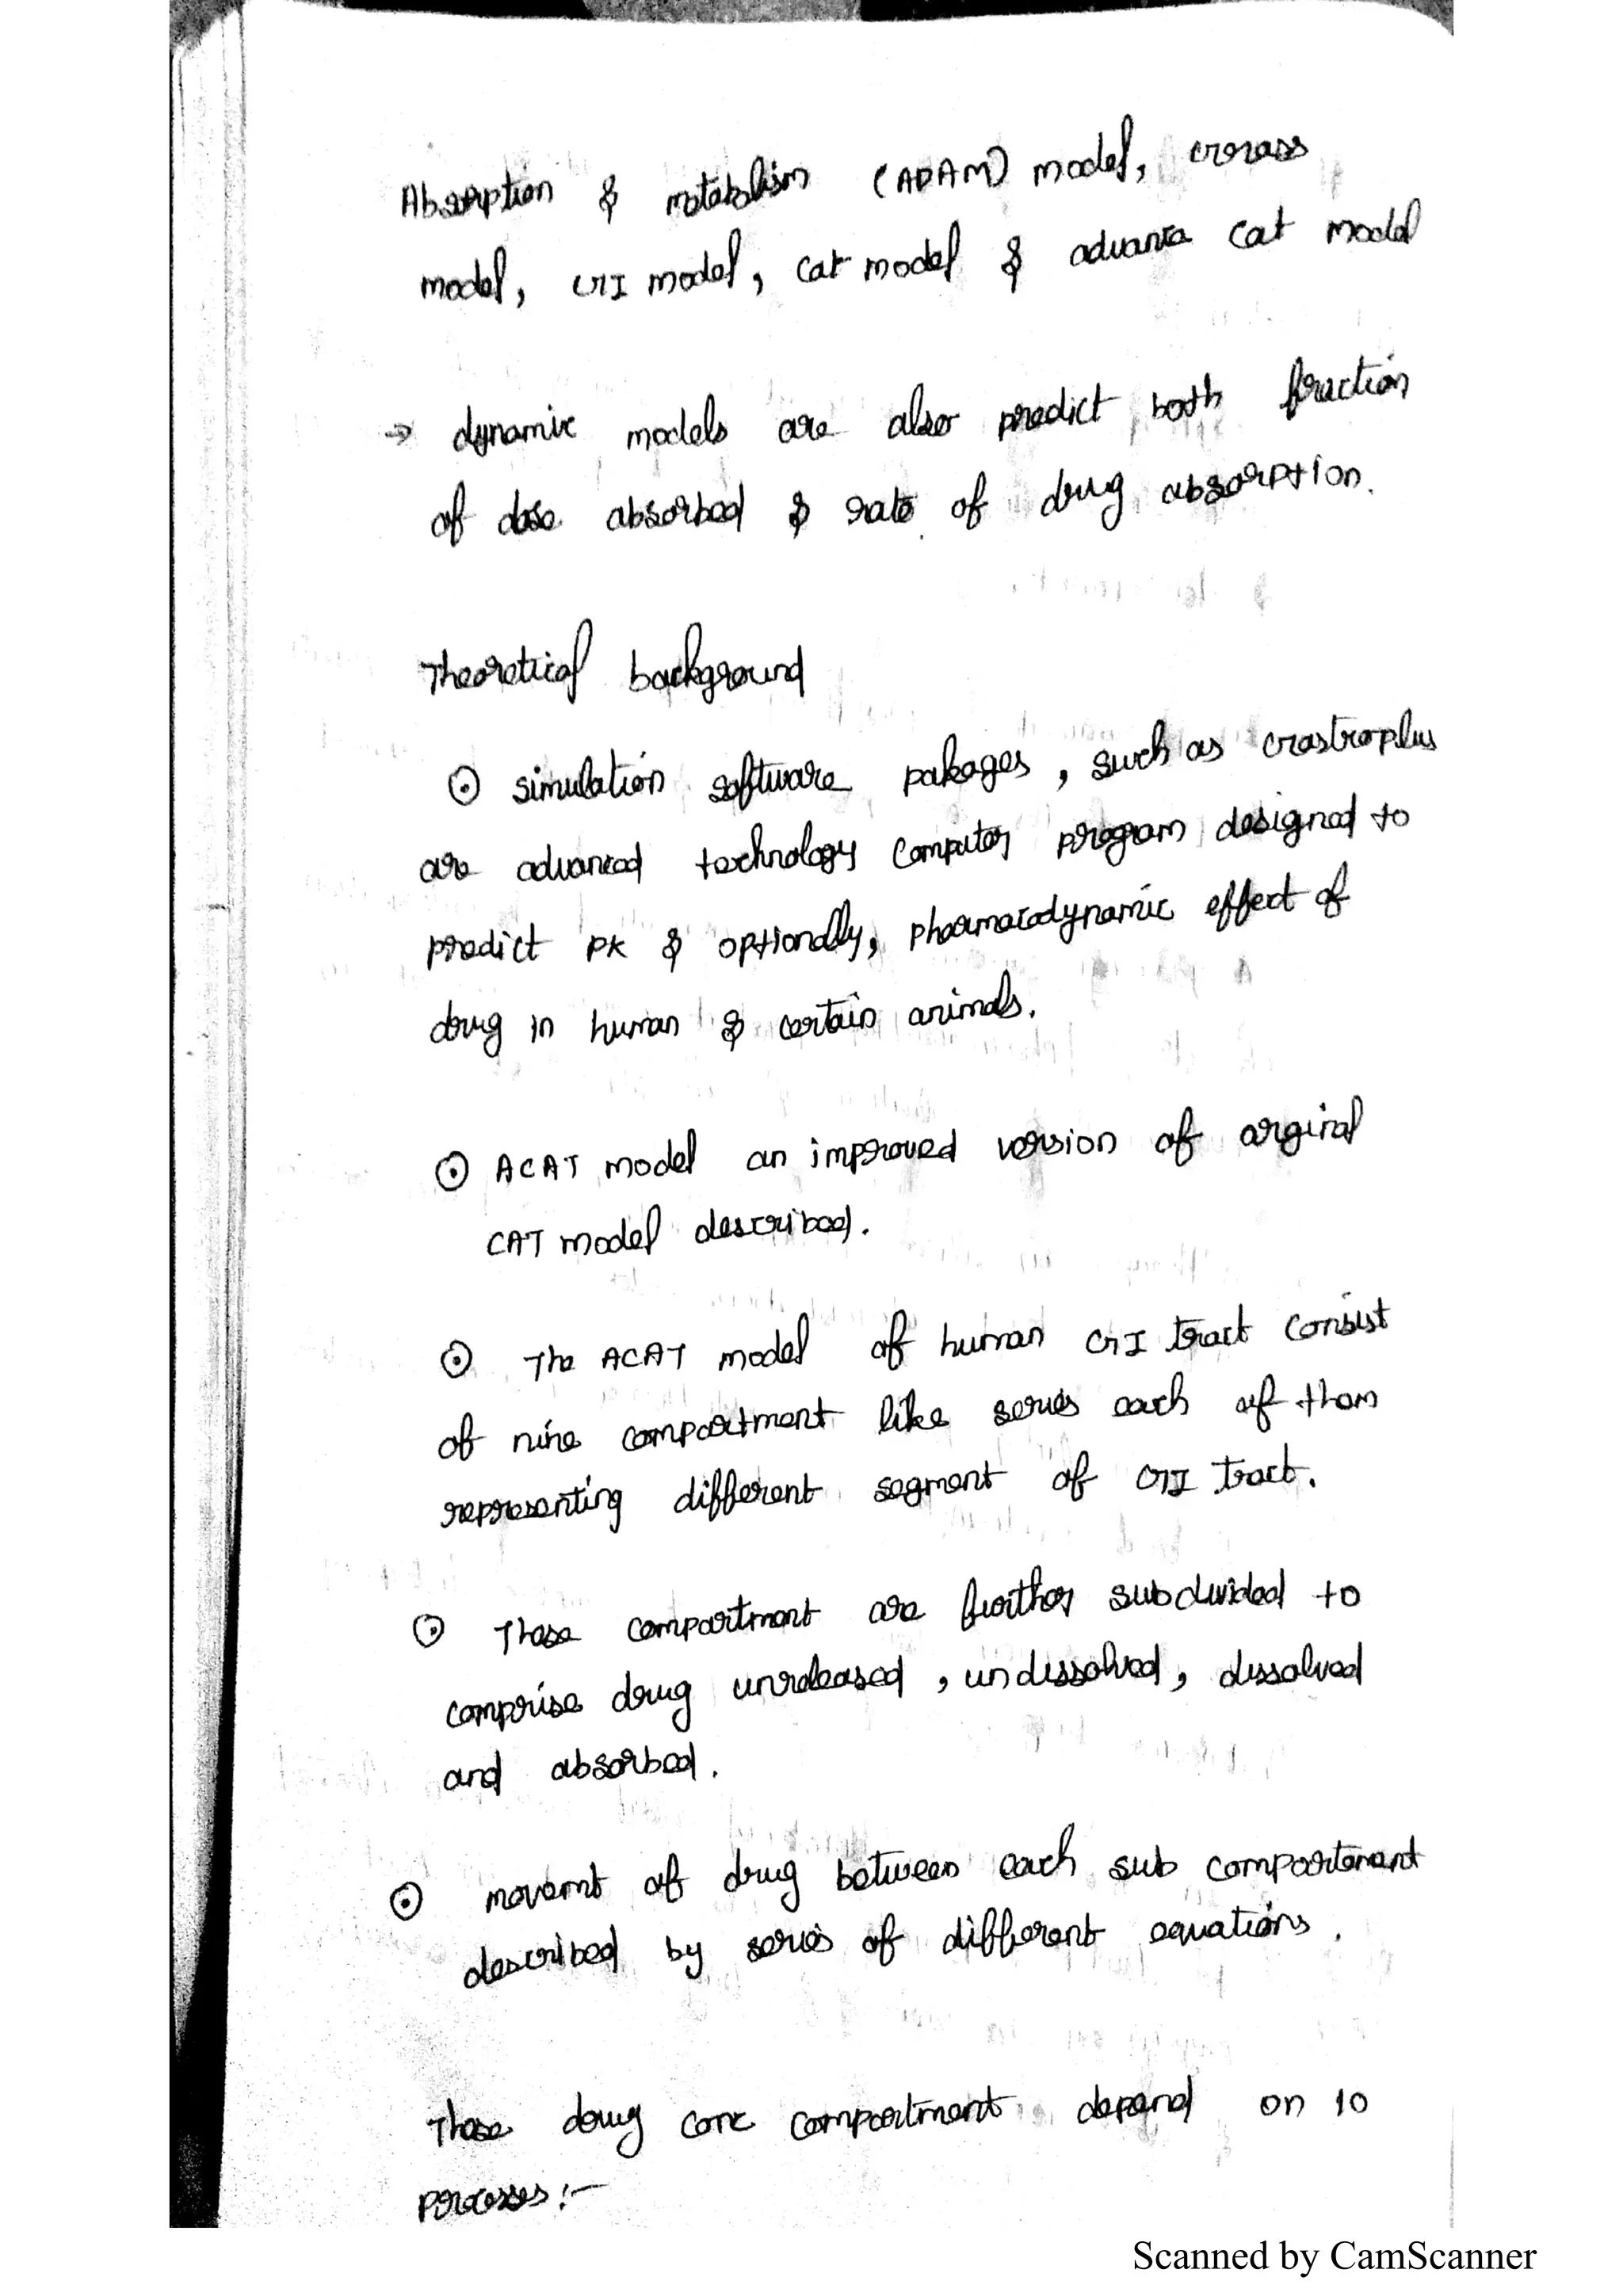 Absorption & metabolism (ADAM) model, Grass
model, GI model, Cat model & advance Cat model
→ dynamic models are also predict both fraction
of dose absorbed & rate of drug absorption.
Theoretical background
⊙ simulation software pakages, such as Gastroplus
are advanced technology Computer program designed to
predict PK & optionally, pharmacodynamic effect of
drug in human & certain animals.
⊙ ACAT model an improved version of orginal
CAT model described.
⊙ The ACAT model of human GI tract Consist
of nine compartment like series each of them
representing different segment of GI tract.
⊙ These compartment are further subdivided to
comprise drug unreleased, undissolved, dissolved
and absorbed.
⊙ movemnt of drug between each sub compartment
described by series of different equations.
These drug conc compartment depend on 10
processes:-
Scanned by CamScanner